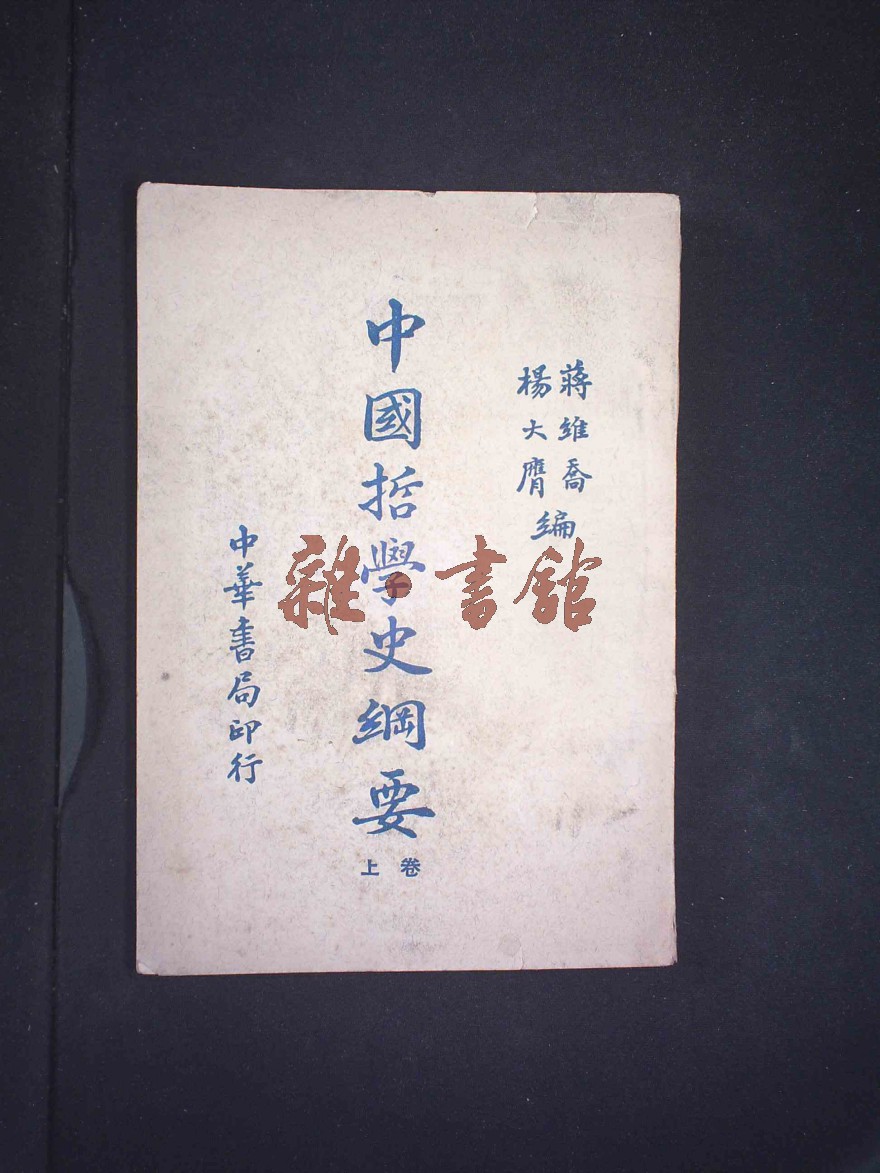 蔣維喬
楊大膺
編
中國哲學史綱要
卷上
中華書局印行
雜·書館